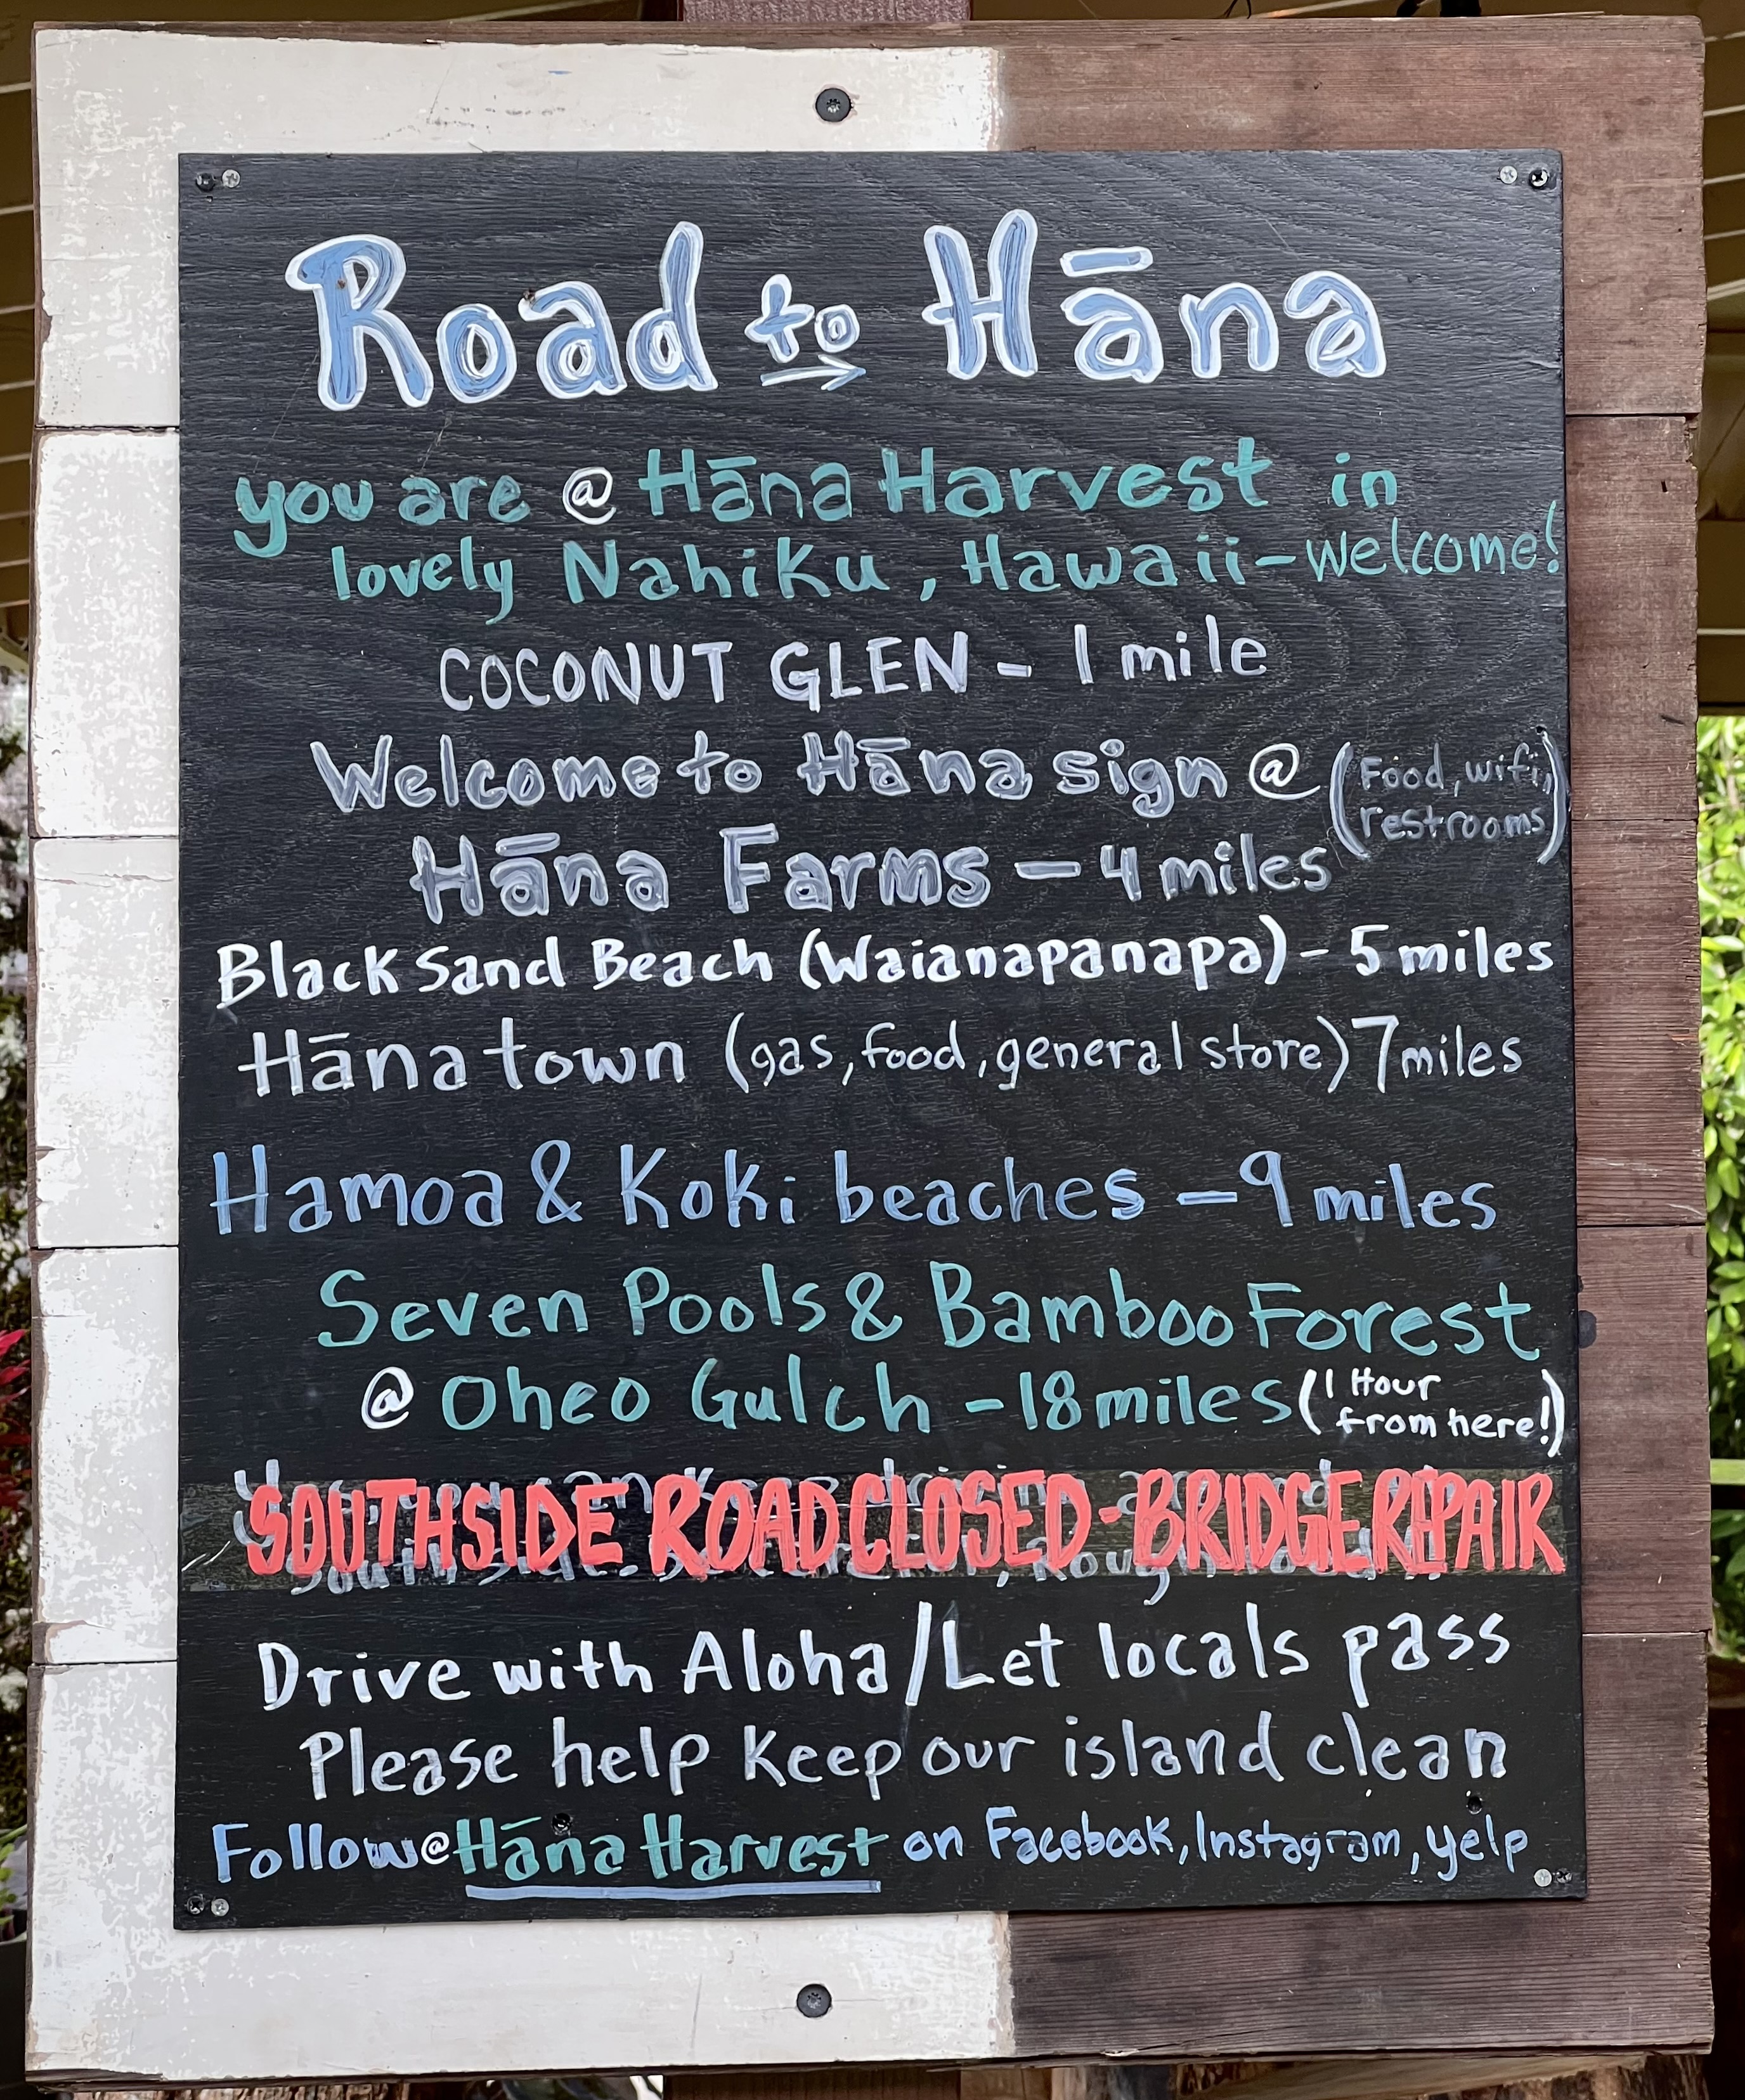 Road to Hāna
you are @ Hāna Harvest in
lovely Nahiku, Hawaii - welcome!
COCONUT GLEN - 1 mile
Welcome to Hāna sign @ (Food, wifi,
restrooms)
Hāna Farms - 4 miles
Black Sand Beach (Waianapanapa) - 5 miles
Hāna town (gas, food, general store) 7 miles
Hamoa & Koki beaches - 9 miles
Seven Pools & Bamboo Forest
@ Oheo Gulch - 18 miles (1 Hour
from here!)
SOUTHSIDE ROAD CLOSED - BRIDGE REPAIR
Drive with Aloha / Let locals pass
Please help keep our island clean
Follow @ Hāna Harvest on Facebook, Instagram, yelp